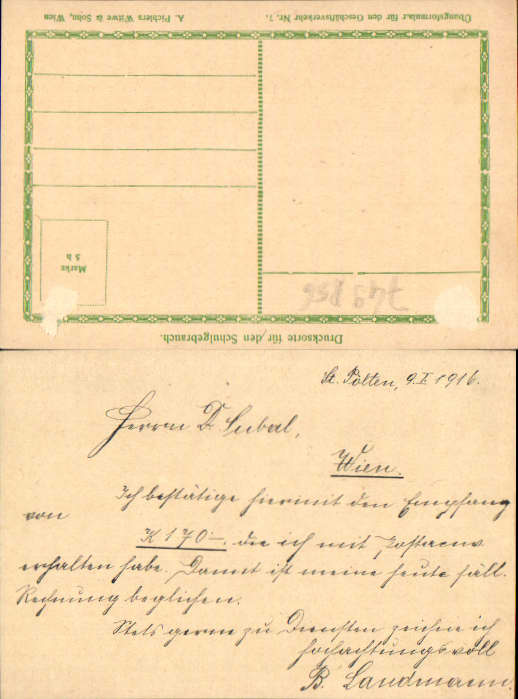 Drucksorte für den Schulgebrauch.
Marke
5 h
Übungsformular für den Geschäftsverkehr Nr. 7.
A. Pichlers Witwe & Sohn, Wien
St. Pölten, 9.I 1916.
Herrn D.
Wien.
Ich bestätige hiermit den Empfang
von
K 170.–, die ich mit Postanw
erhalten habe. Damit ist meine heute fäll.
Rechnung beglichen.
Stets gerne zu Diensten zeichne ich
hochachtungsvoll
B. Landmann